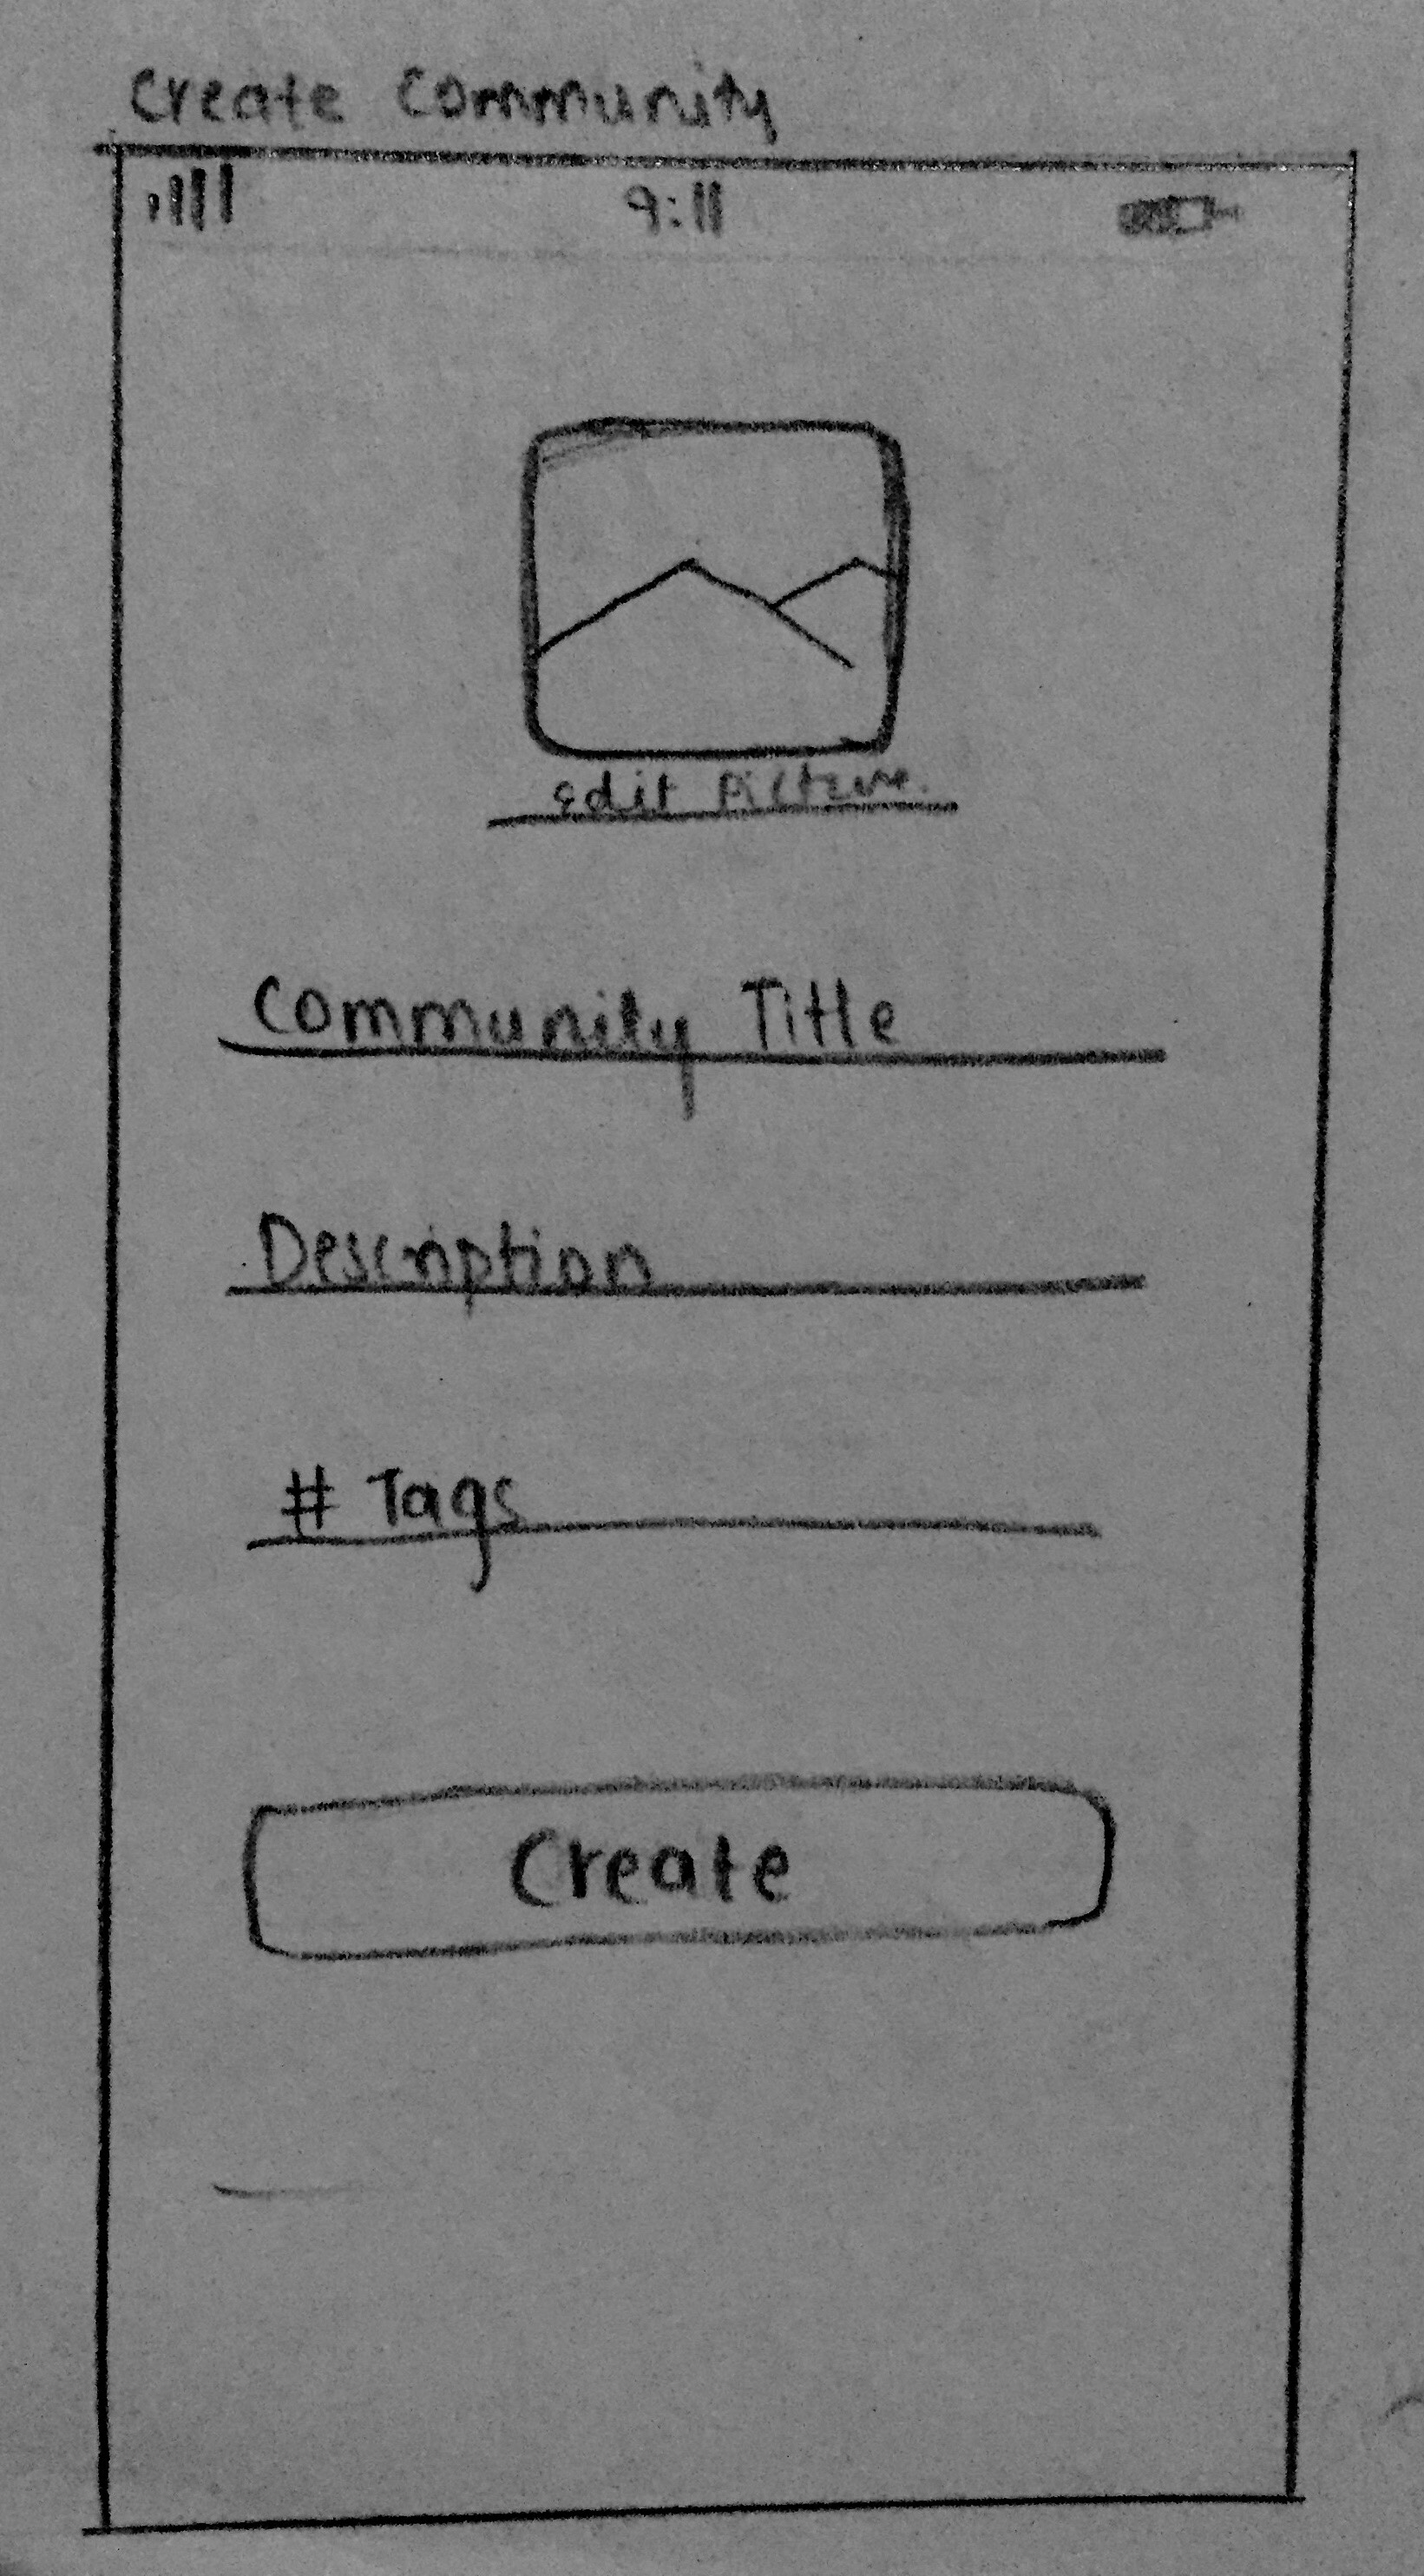 Create Community
9:11
Edit Picture
Community Title
Description
# Tags
Create